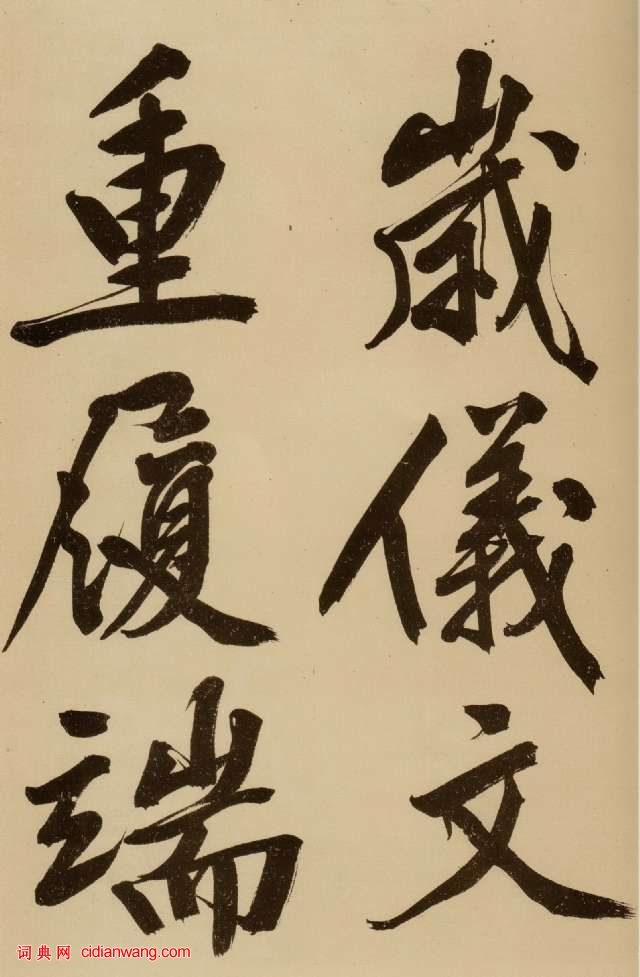 歲儀文
重履端
词典网 cidianwang.com